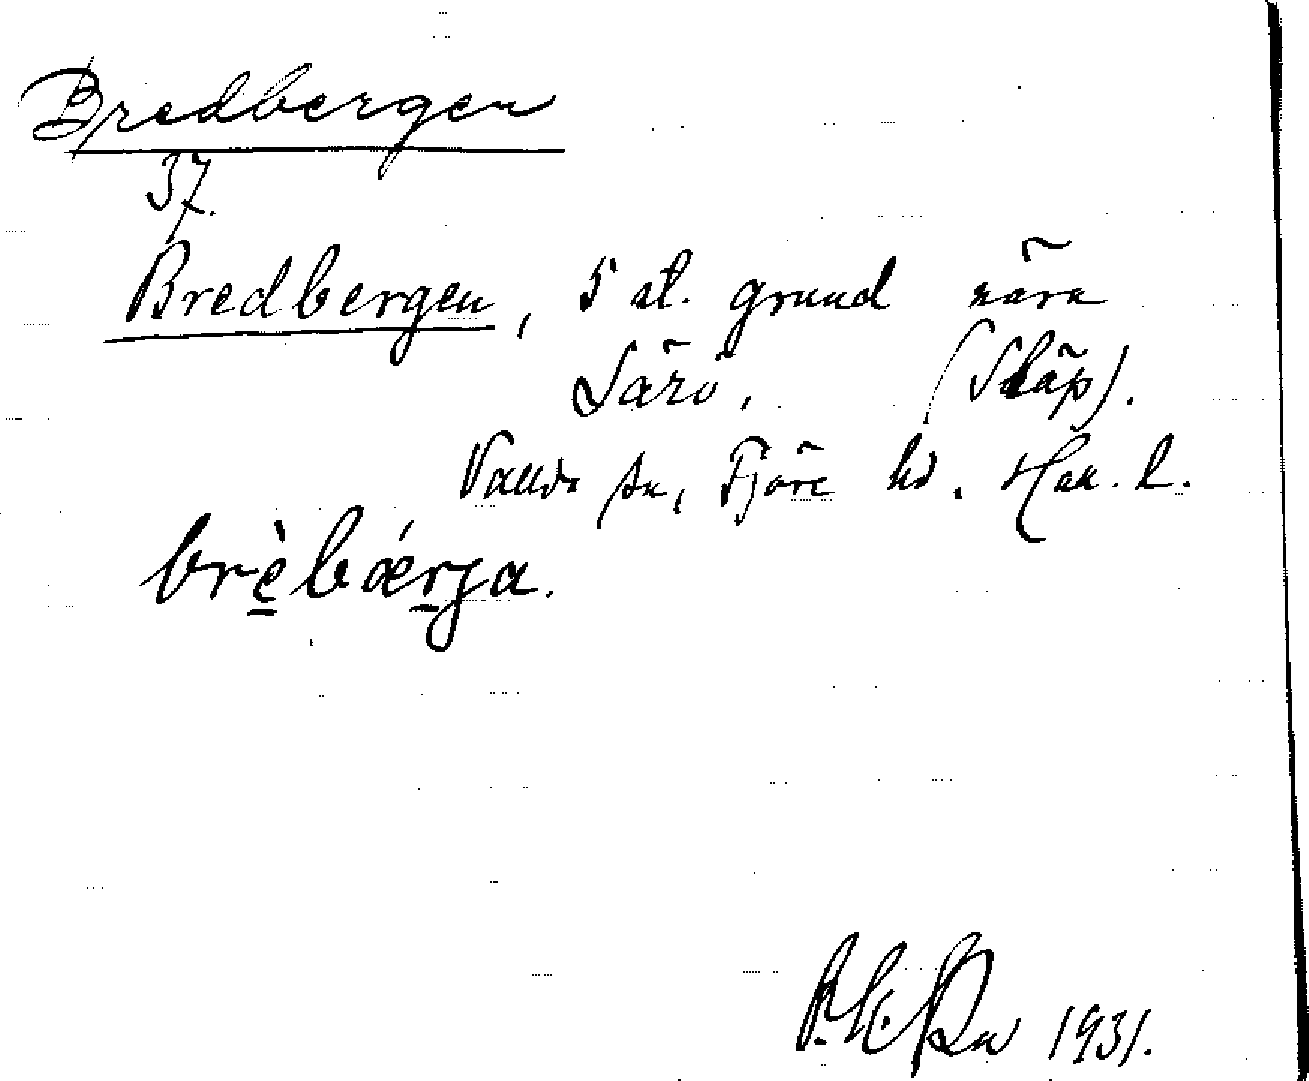 Bredbergen
37.
Bredbergen, 5 st. grund nära
Särö, (Släp).
Vallda sn, Fjäre hd. Hall. l.
brèbǽrja.
1931.